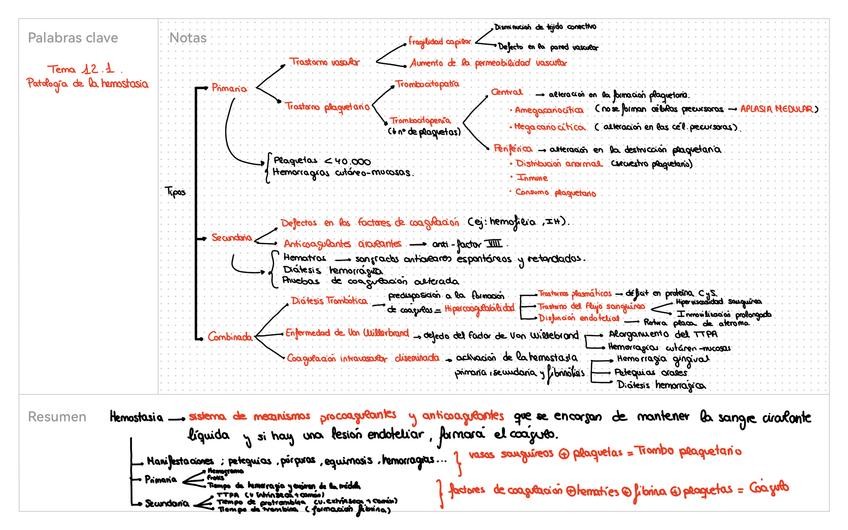 Palabras clave
Notas
Tema 12.1.
Patología de la hemostasia
Tipos
Primaria
Trastorno vascular
Fragilidad capilar
Disminución de tejido conectivo
Defecto en la pared vascular
Aumento de la permeabilidad vascular
Trastorno plaquetario
Trombocitopatía
Trombocitopenia
(↓ nº de plaquetas)
Central → alteración en la formación plaquetaria.
· Amegacariocítica (no se forman células precursoras → APLASIA MEDULAR)
· Megacariocítica (alteración en las cél. precursoras).
Periférica → alteración en la destrucción plaquetaria
· Distribución anormal (secuestro plaquetario)
· Inmune
· Consumo plaquetario
Plaquetas < 40.000
Hemorragias cutáneo-mucosas.
Secundaria
Defectos en los factores de coagulación (ej: hemofilia, IH).
Anticoagulantes circulantes → anti-factor VIII.
Hematros → sangrados antiarticulares espontáneos y retardados.
Diátesis hemorrágica
Pruebas de coagulación alterada
Combinada
Diátesis Trombótica → predisposición a la formación
de coágulos = Hipercoagulabilidad
Trastornos plasmáticos → déficit en proteína C y S.
Trastorno del flujo sanguíneo
Hiperviscosidad sanguínea
Inmovilización prolongada
Disfunción endotelial → Rotura placa de ateroma
Enfermedad de Von Willerbrand → defecto del factor de Von Willebrand
Alargamiento del TTPA
Hemorragias cutáneo-mucosas
Coagulación intravascular diseminada → activación de la hemostasia
primaria, secundaria y fibrinólisis
Hemorragia gingival
Petequias
Diátesis hemorrágica
Resumen
Hemostasia → sistema de mecanismos procoagulantes y anticoagulantes que se encargan de mantener la sangre circulante
líquida y si hay una lesión endoteliar, formará el coágulo.
Manifestaciones: petequias, púrpuras, equimosis, hemorragias...
Primaria
Hemograma
Tiempo de hemorragia y examen de la médula
Secundaria
TTPA (v. intrínseca + común)
Tiempo de protrombina (v. extrínseca + común)
Tiempo de trombina (formación fibrina)
vasos sanguíneos ⊕ plaquetas = Trombo plaquetario
factores de coagulación ⊕ hematíes ⊕ fibrina ⊕ plaquetas = Coágulo